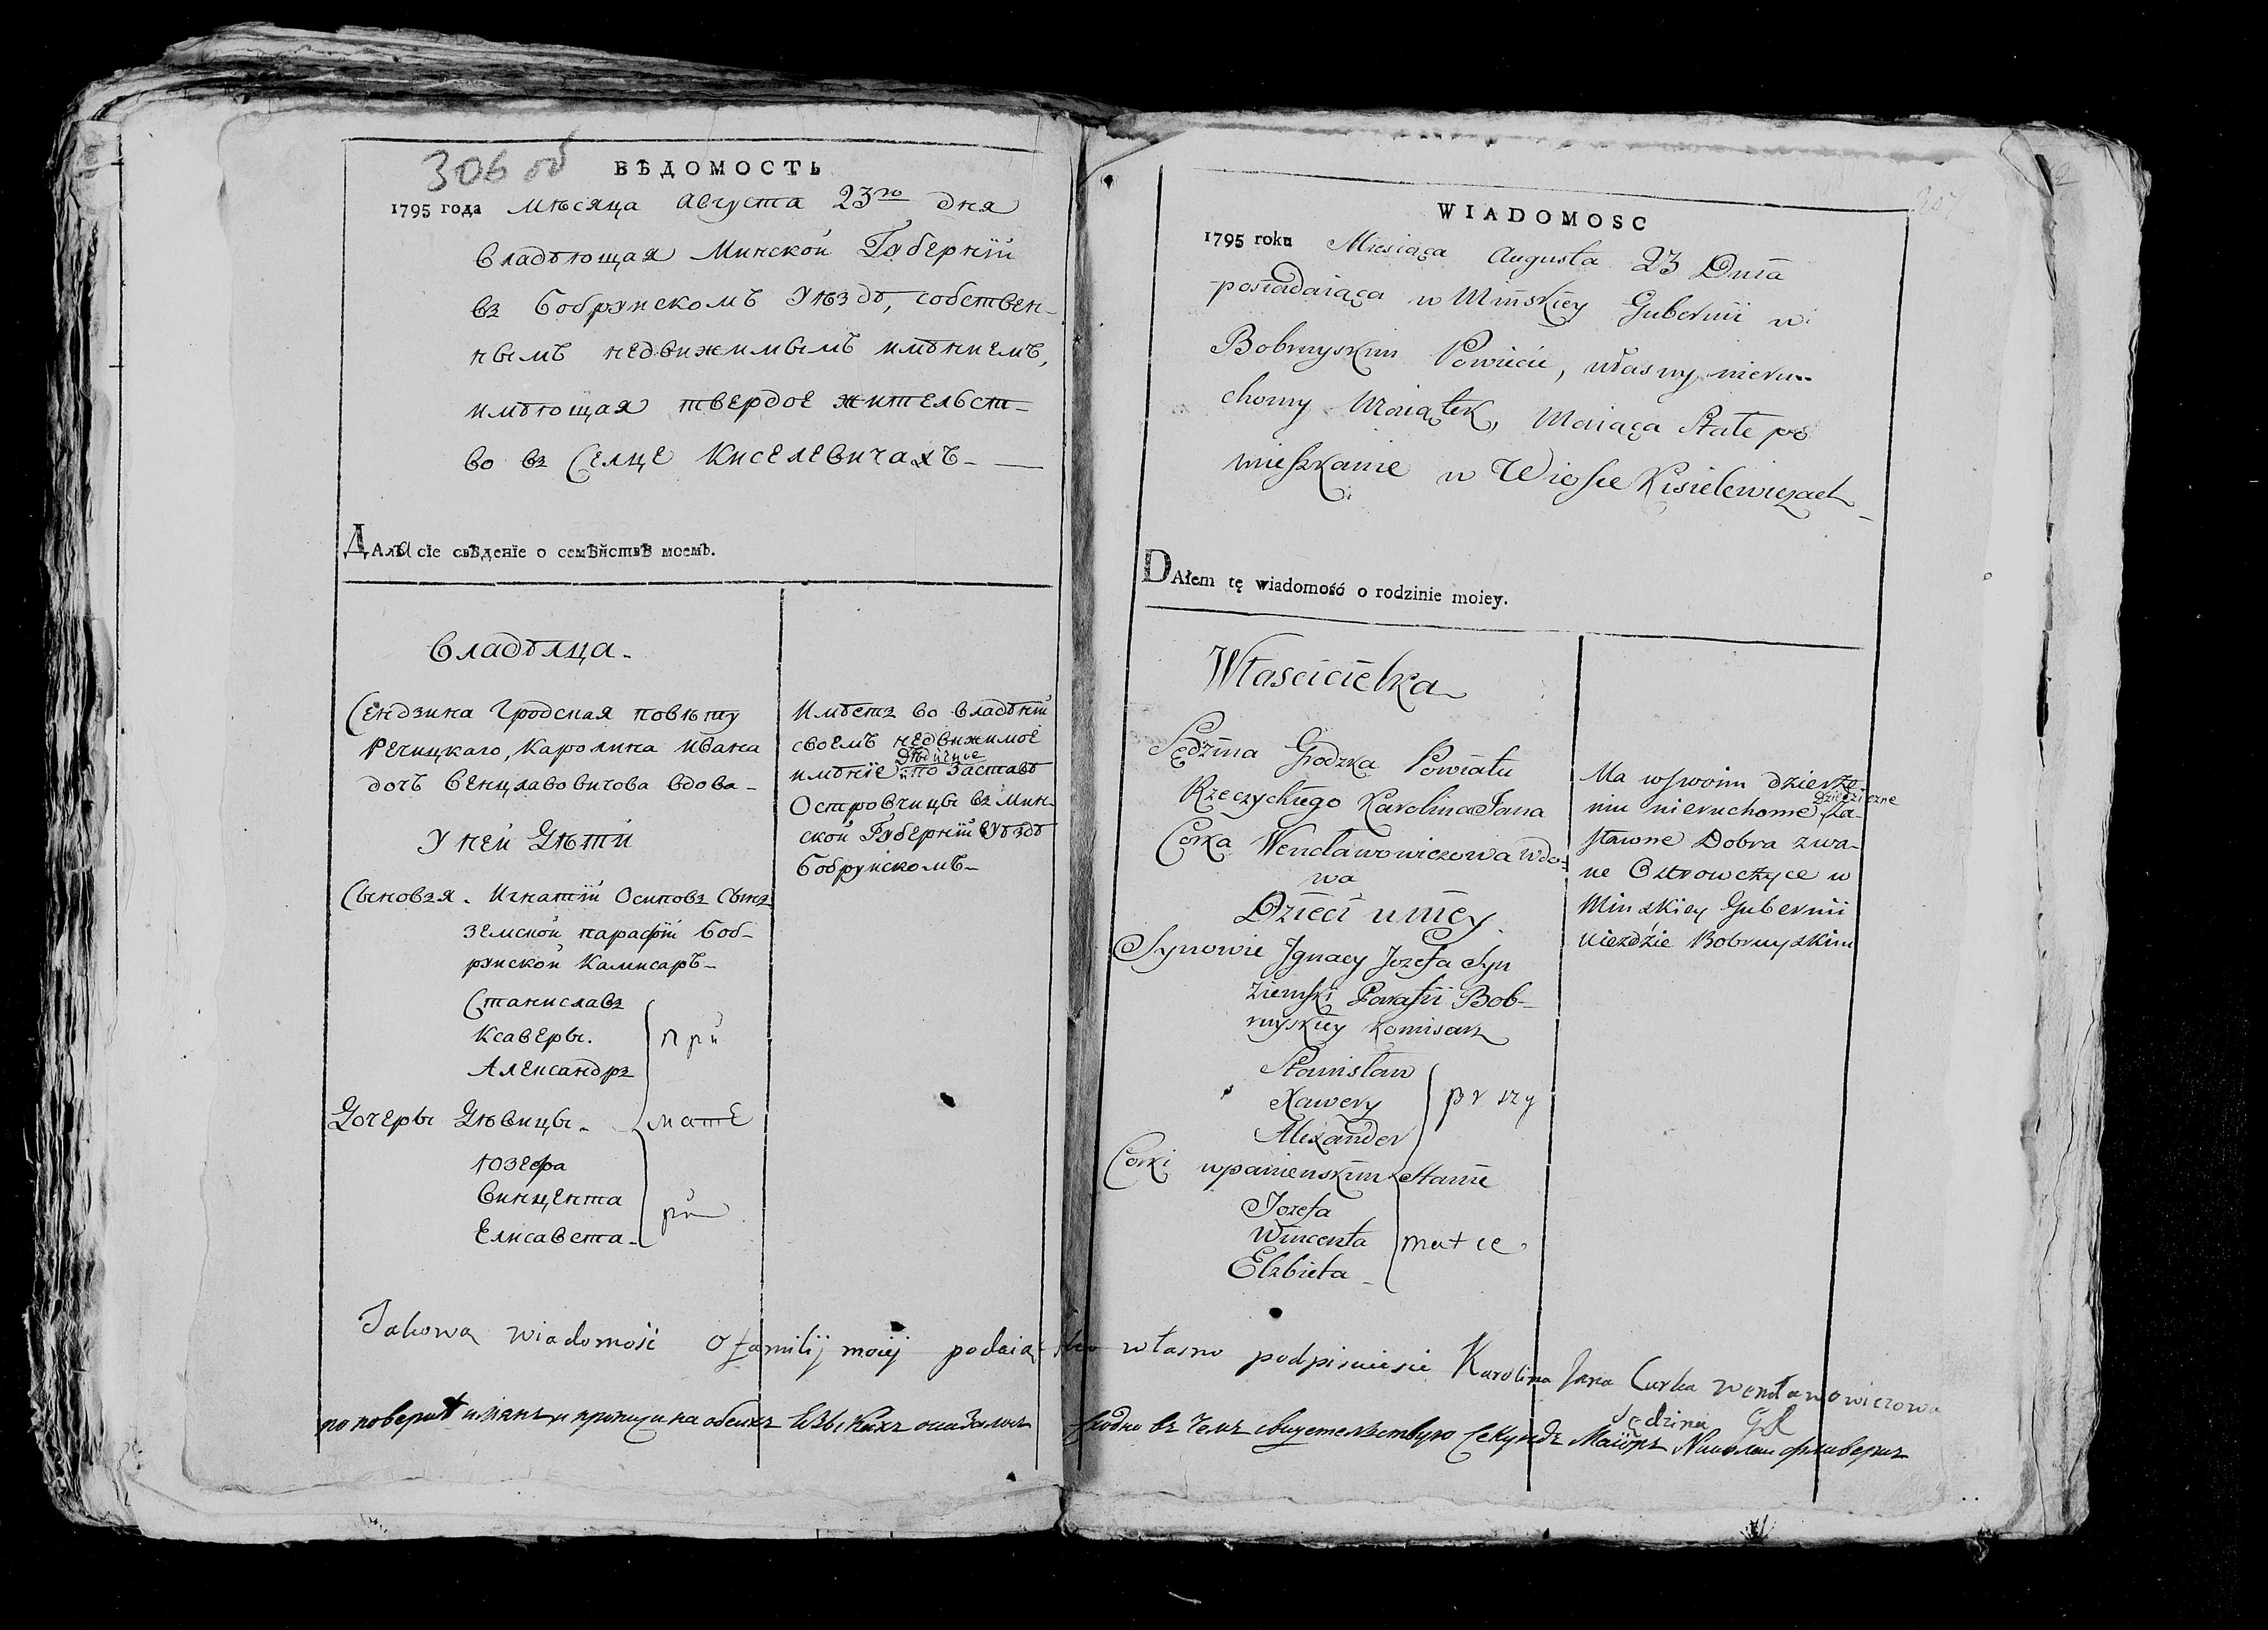 306 об
ВѢДОМОСТЬ
1795 года мѣсяца Августа 23го дня
владѣющая Минской Губернїи
въ Бобруйскомъ Уѣздѣ, собствен-
нымъ недвижимымъ имѣниемъ,
имѣющая твердое жительст-
во въ Селце Киселевичахъ-
ДАлъа сїе свѣденїе о семѣйствѣ моемъ.
Владѣлца-
Сендзина Гродская повѣту
Речицкаго, Каролина Ивана
дочъ Венцлавовичова вдова-
У ней Дѣти
Сыновзя. Игнатїй Осиповъ Сынъ
земской парафїи Боб-
руйской Камисаръ-
Станиславъ
Ксаверы.
Александръ
при
Дочеры Дѣвицы.
мате
Юзефа
Винцента
Елисавета.
ри
Имѣетъ во владѣнїи
своемъ недвижимое
Дѣдичное
имѣнїе и по заставѣ
Островчицы въ Мин-
ской Губернїи Уѣздѣ
Бобруйскомъ-
WIADOMOSC
1795 roku Miesiąca Augusta 23 Dnia
posiadaiąca w Minskiey Gubernii w
Bobruyskim Powiecie, własny nieru-
chomy Maiątek, Maiąca Stałe po
mieszkanie w Wiosce Kisielewiczach
DAłem tę wiadomość o rodzinie moiey.
Własciciełka
Sędzina Grodzka Powiatu
Rzeczyckiego Karolina Jana
Corka Wencławowiczowa wdo-
wa
Dzieci u niey
Synowie Jgnacy Jozefa Syn
Ziemski Parafii Bob-
ruyskiey Komisarz
Stanisław
Xawery
Alexander
przy
Corki w panienskim Stanie
Jozefa
Wincenta
Elzbieta
matce
Ma w swoim dzierże-
Dziedziczne
niu nieruchome Za-
stawne Dobra zwa-
ne Ostrowczyce w
Minskiey Gubernii
uiezdzie Bobruyskim
Takową wiadomość o familij moiej podaiąc własno podpisuie się Karolina Jana Curka Wencławowiczowa
Sędzina GR
по поверки имянъ и протчи на обеихъ Езыкахъ оказалось сходно въ чемъ свидетелствую Секундъ Маіоръ Николай